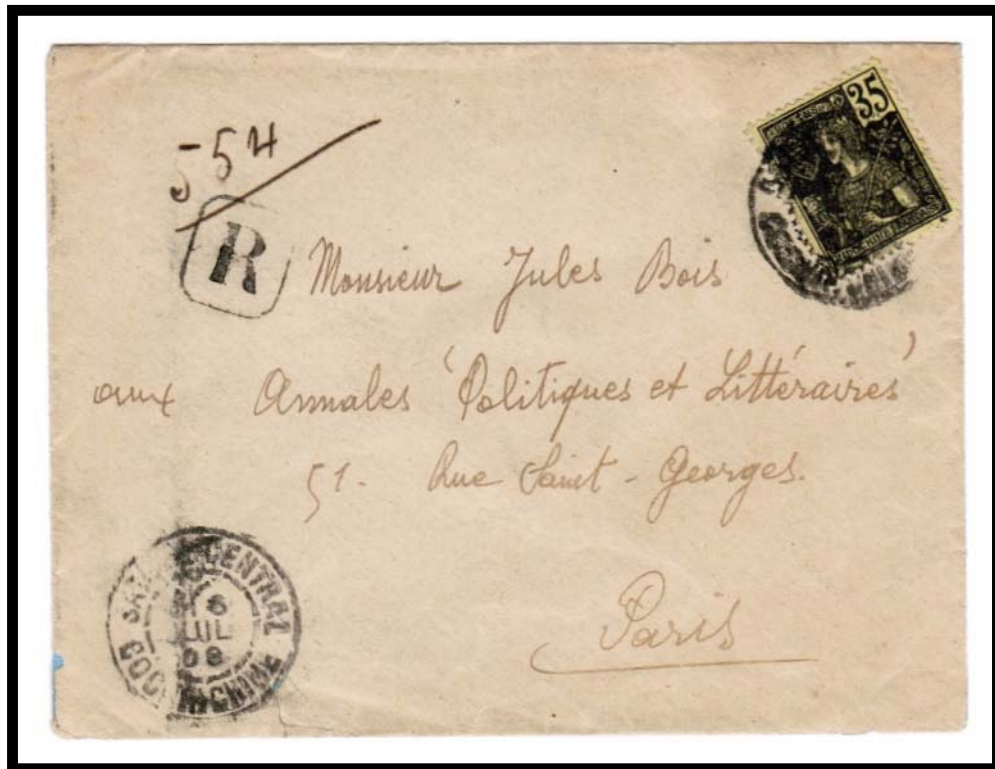 554
35
R
Monsieur Jules Bois
aux Annales 'Politiques et Littéraires'
51. Rue Saint-Georges.
Paris
CENTRAL
6
JUIL
08
COCHINCHINE